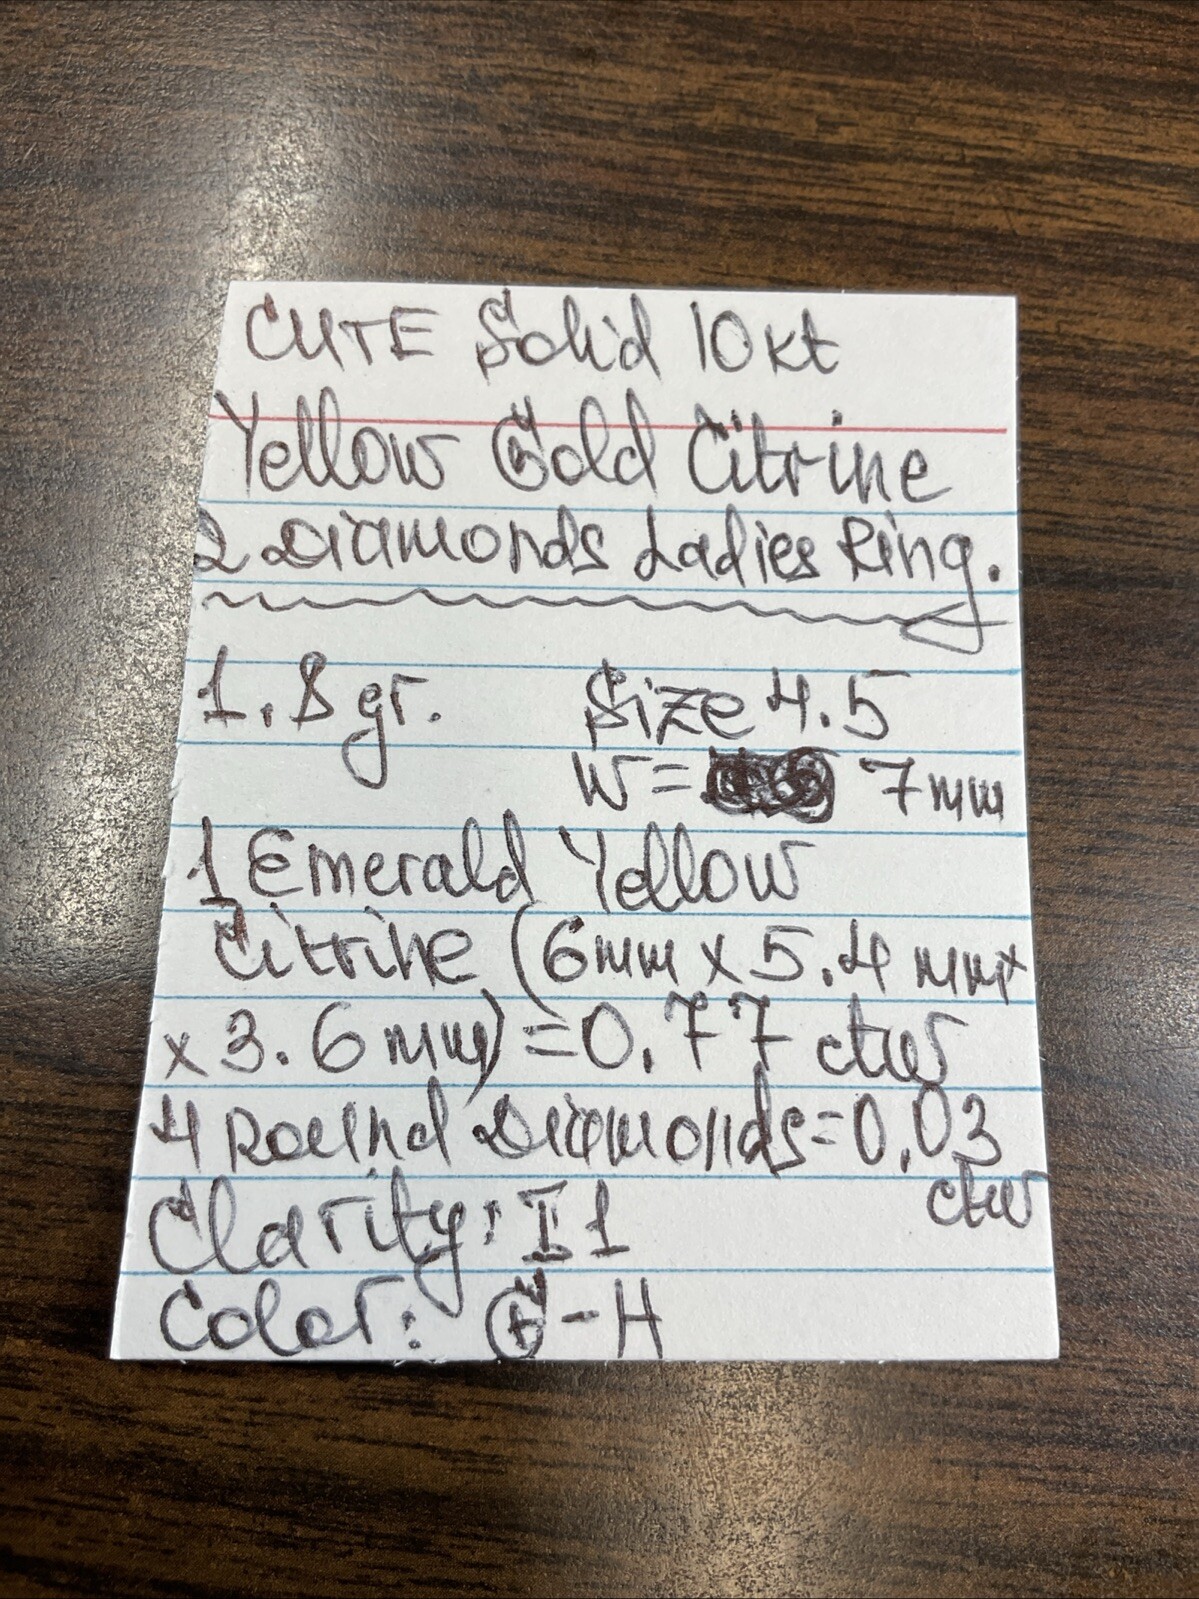 CUTE Solid 10kt
Yellow Gold Citrine
2 Diamonds Ladies Ring.
1.8gr. Size 4.5
W= 7mm
1 Emerald Yellow
Citrine (6mm x 5.4 mm x
x 3.6 mm) = 0.77 ctw
4 Round Diamonds = 0.03
ctw
Clarity: I1
Color: G-H